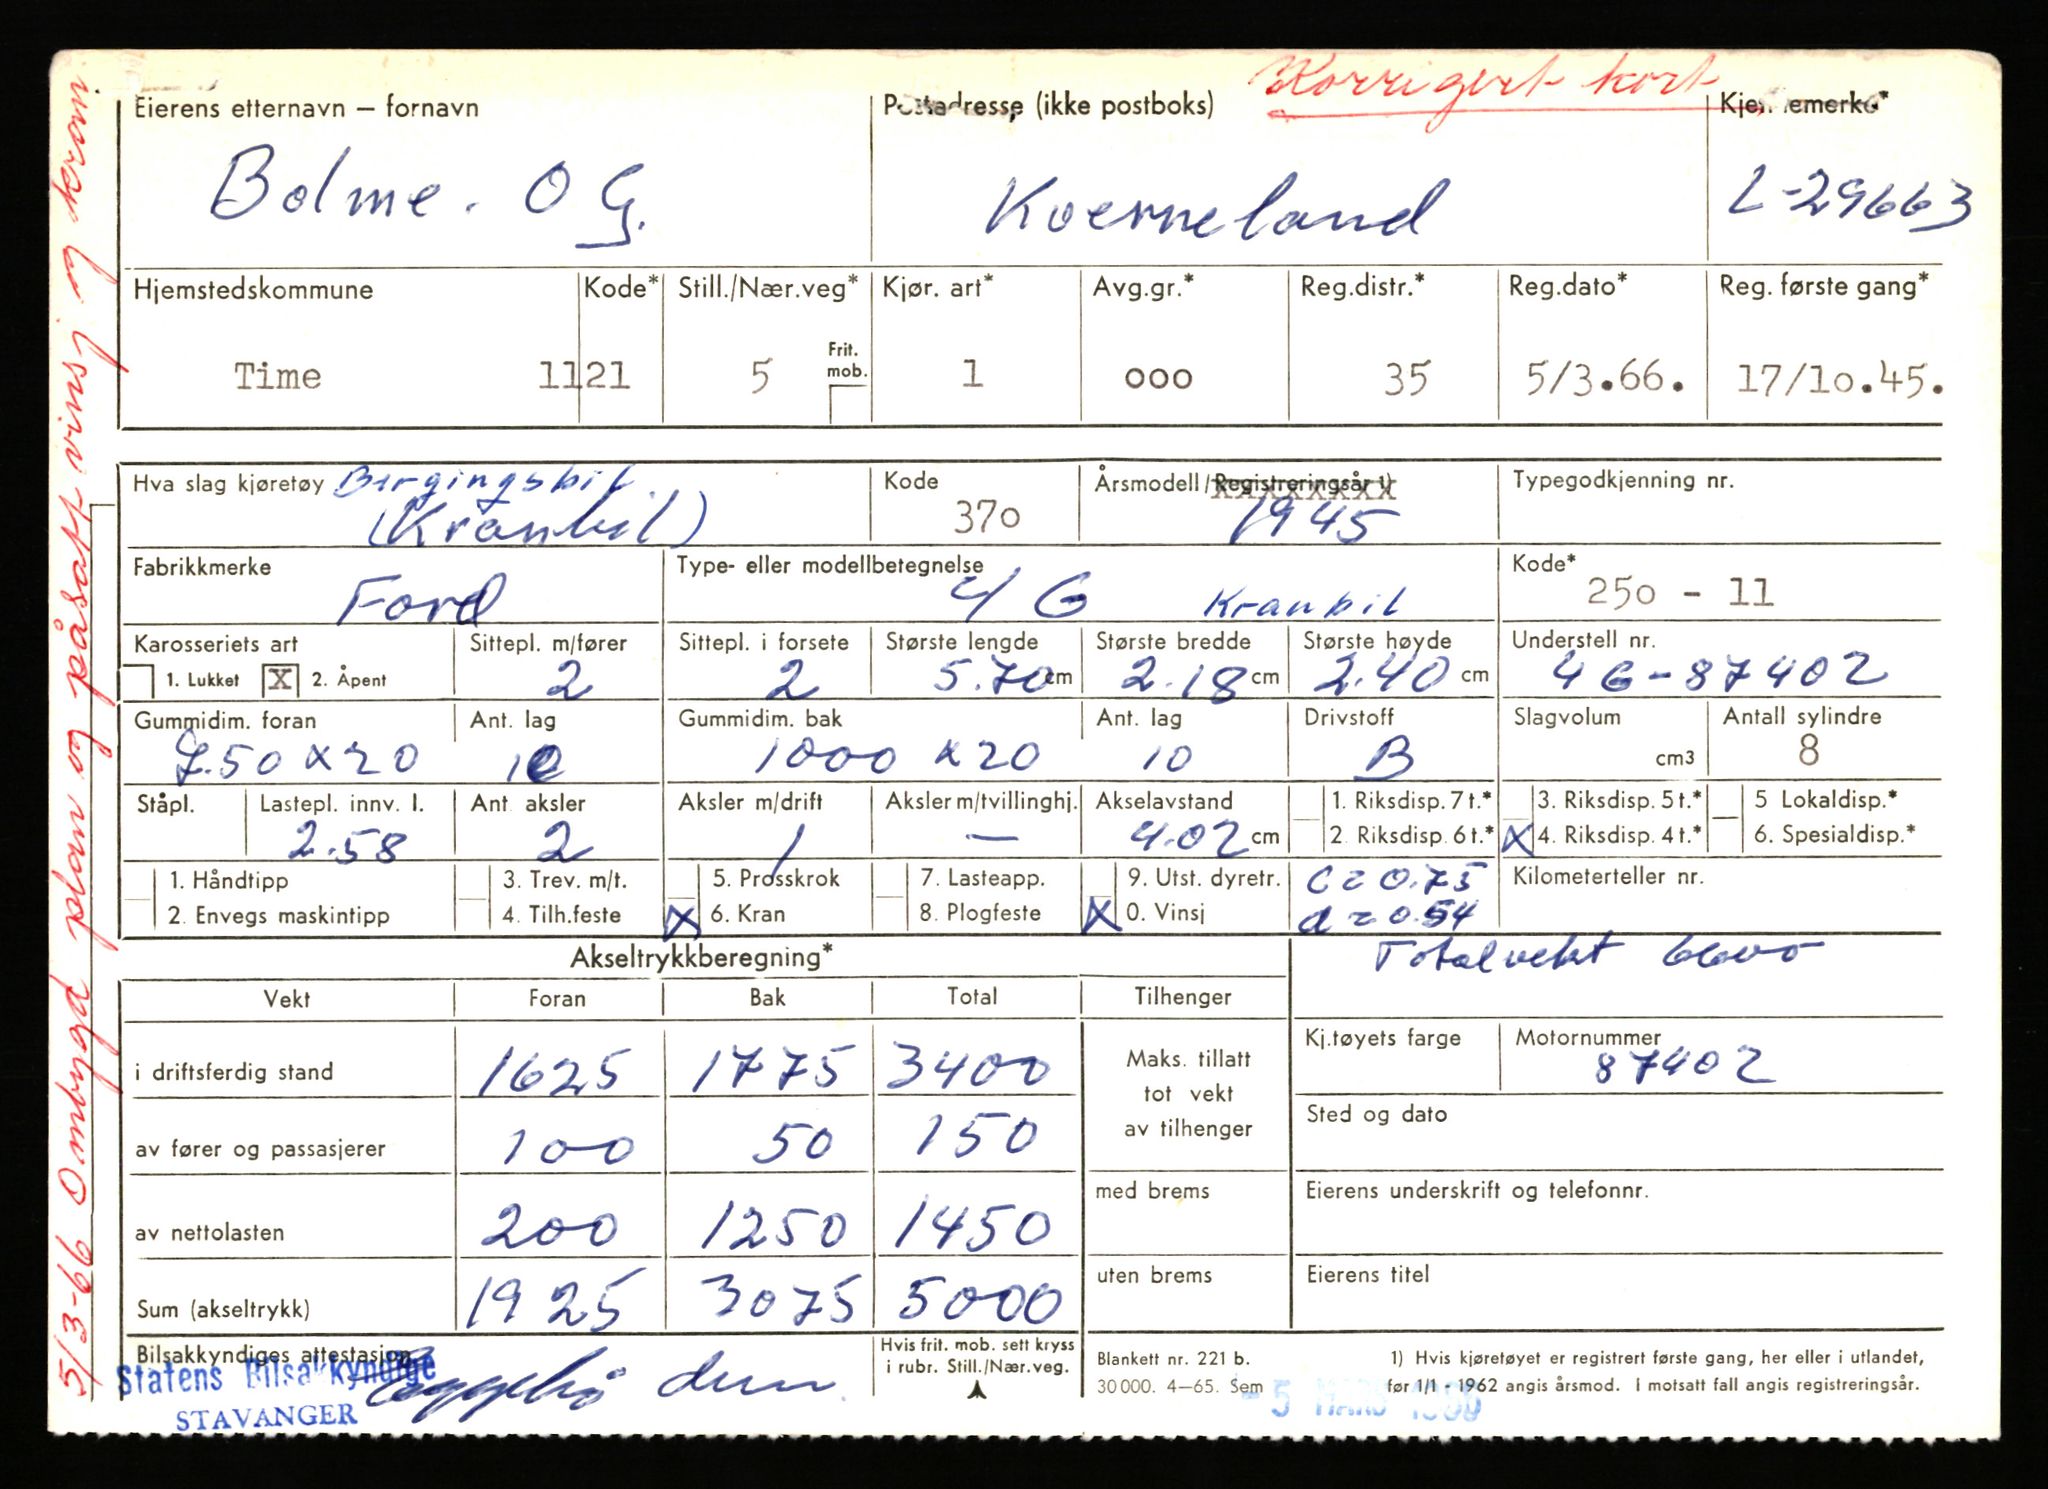 Korrigert kort
Eierens etternavn – fornavn
Postadresse (ikke postboks)
Bolme. O G.
Kverneland
L-29663
Hjemstedskommune Kode* Still./Nær.veg* Kjør. art* Avg.gr.* Reg.distr.* Reg.dato* Reg. første gang*
Frit. mob.
Time 1121 5 1 ooo 35 5/3.66. 17/1o.45.
Hva slag kjøretøy Bergingsbil Kode Årsmodell/Registreringsår 1) Typegodkjenning nr.
(Kranbil) 37o 1945
Fabrikkmerke Type- eller modellbetegnelse Kode*
Ford 4 G Kranbil 25o - 11
Karosseriets art Sittepl. m/fører Sittepl. i forsete Største lengde Største bredde Største høyde Understell nr.
1. Lukket X 2. Åpent 2 2 5.70 cm 2.18 cm 2.40 cm 4G-87402
Gummidim. foran Ant. lag Gummidim. bak Ant. lag Drivstoff Slagvolum Antall sylindre
7.50 x 20 10 1000 x 20 10 B cm3 8
Ståpl. Lastepl. innv. l. Ant aksler Aksler m/drift Aksler m/tvillinghj. Akselavstand 1. Riksdisp. 7 t.* 3. Riksdisp. 5 t.* 5 Lokaldisp.*
2.58 2 1 — 4.02 cm 2. Riksdisp. 6 t.* X 4. Riksdisp. 4 t.* 6. Spesialdisp.*
1. Håndtipp 3. Trev. m/t. 5. Prosskrok 7. Lasteapp. 9. Utst. dyretr. c = 0.75 Kilometerteller nr.
2. Envegs maskintipp 4. Tilh.feste X 6. Kran 8. Plogfeste X 0. Vinsj d = 0.54
Akseltrykkberegning* Totalvekt 6600
Vekt Foran Bak Total Tilhenger
Kj.tøyets farge Motornummer
i driftsferdig stand 1625 1775 3400 Maks. tillatt tot vekt av tilhenger 87402
Sted og dato
av fører og passasjerer 100 50 150
med brems Eierens underskrift og telefonnr.
av nettolasten 200 1250 1450
uten brems Eierens titel
Sum (akseltrykk) 1925 3075 5000
Bilsakkyndiges attestasjon
Hvis frit. mob. sett kryss
i rubr. Still./Nær.veg.
Statens Bilsakkyndige
STAVANGER
Blankett nr. 221 b.
30 000. 4–65. Sem
-5 MARS 1966
1) Hvis kjøretøyet er registrert første gang, her eller i utlandet,
før 1/1 - 1962 angis årsmod. I motsatt fall angis registreringsår.
5/3-66 Ombygd plan og påsatt vinsj og kran.